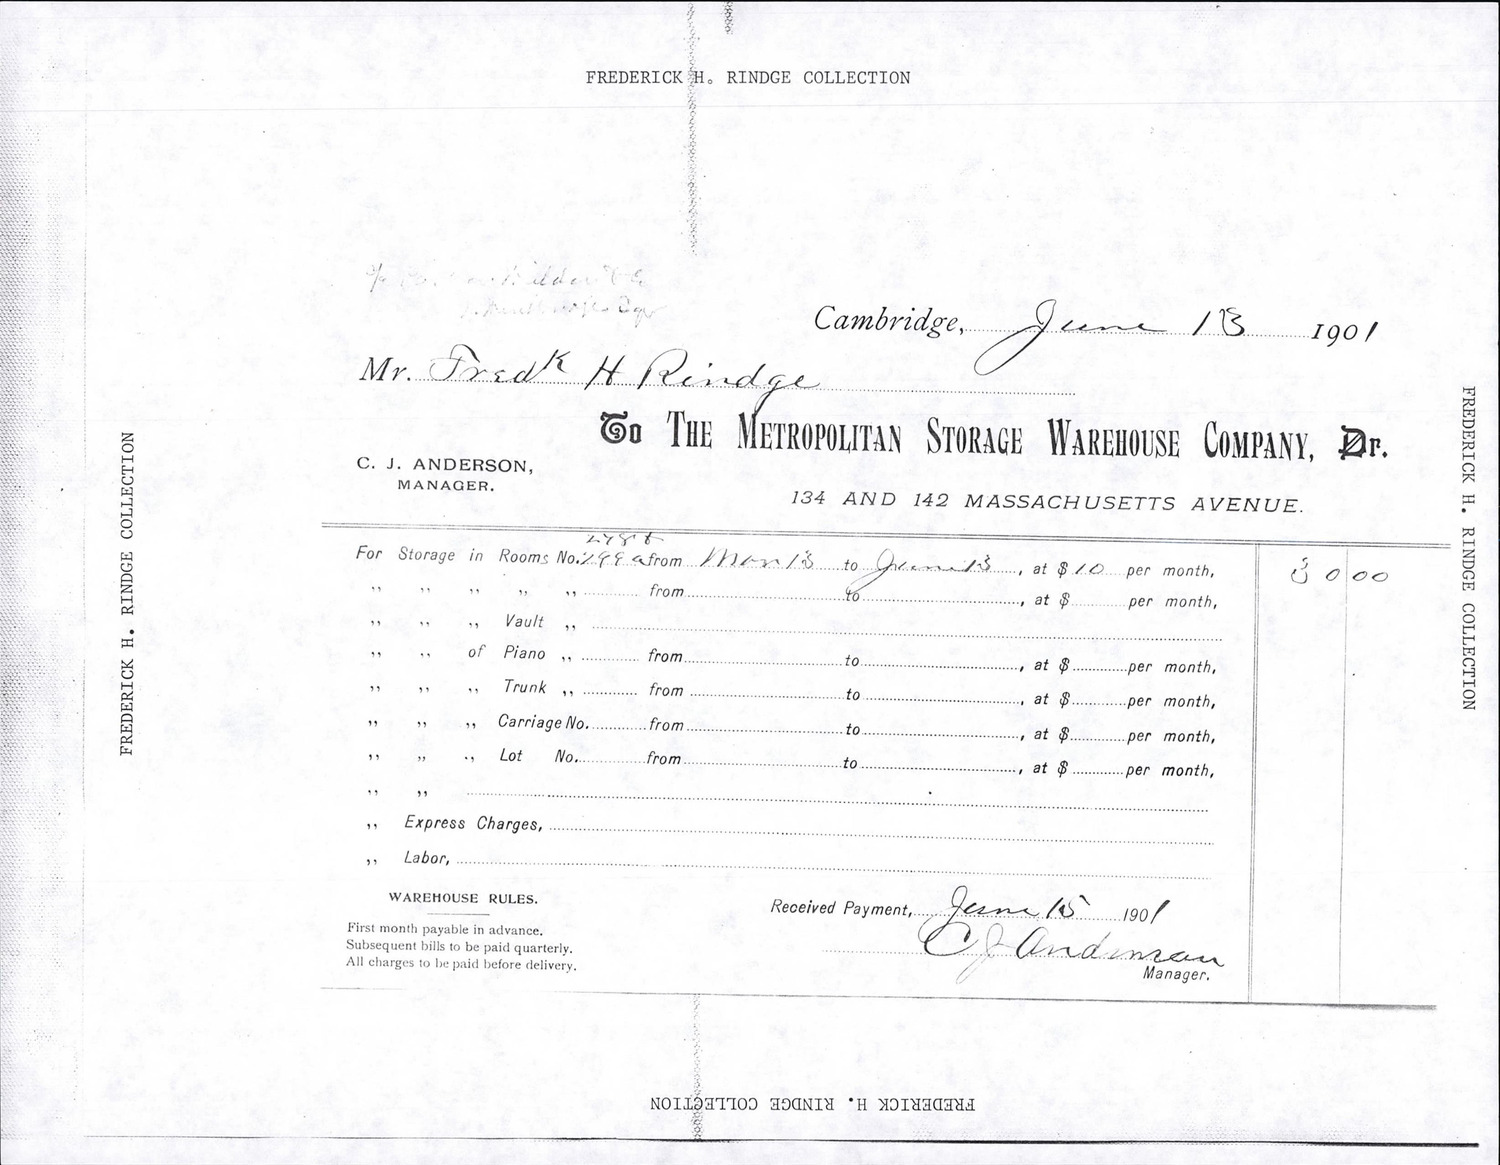 FREDERICK H. RINDGE COLLECTION
Cambridge, June 13 1901
Mr. Fredk H Rindge
To THE METROPOLITAN STORAGE WAREHOUSE COMPANY, Dr.
C. J. ANDERSON,
MANAGER.
134 AND 142 MASSACHUSETTS AVENUE.
For Storage in Rooms No. 299a from Mar 13 to June 13, at $10 per month, 30 00
,, ,, ,, ,, ,, from to , at $ per month,
,, ,, ,, Vault ,,
,, ,, of Piano ,, from to , at $ per month,
,, ,, ,, Trunk ,, from to , at $ per month,
,, ,, ,, Carriage No. from to , at $ per month,
,, ,, ,, Lot No. from to , at $ per month,
,, ,,
,, Express Charges,
,, Labor,
WAREHOUSE RULES.
First month payable in advance.
Subsequent bills to be paid quarterly.
All charges to be paid before delivery.
Received Payment, June 15 1901
C J Anderson
Manager.
FREDERICK H. RINDGE COLLECTION
FREDERICK H. RINDGE COLLECTION
FREDERICK H. RINDGE COLLECTION